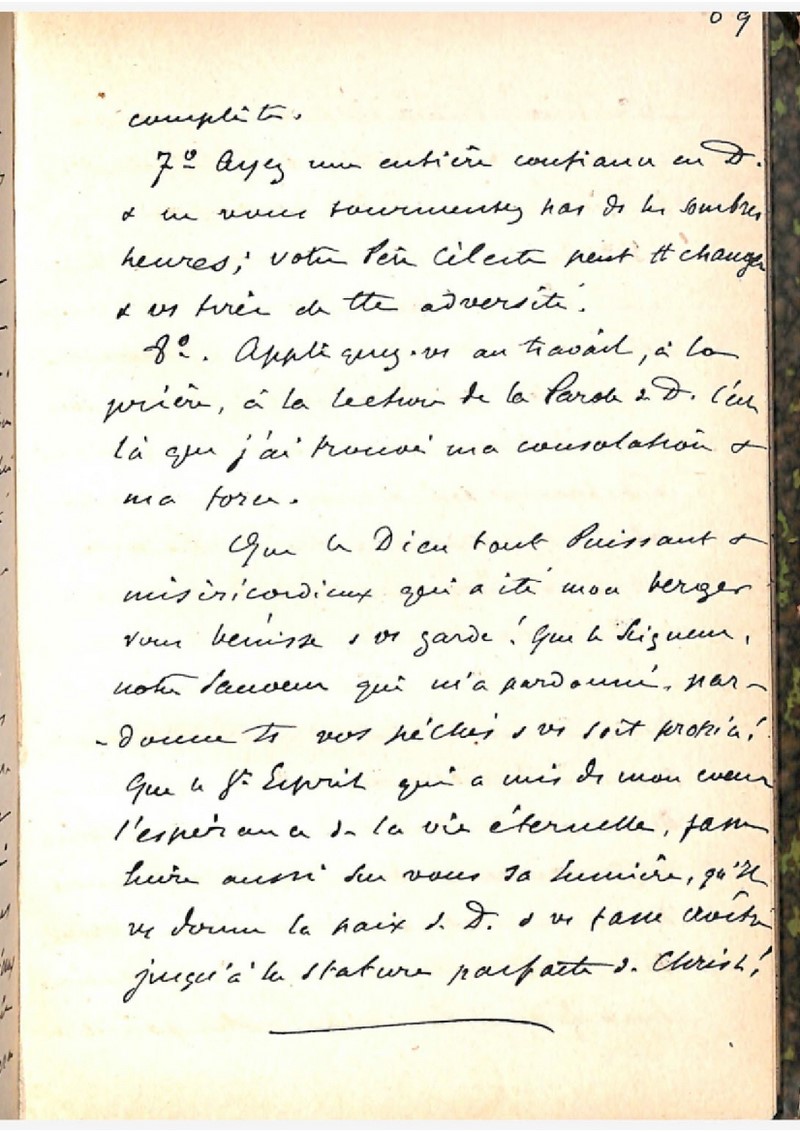 69
complète.
7º Ayez une entière confiance en D.
& ne vous tourmentez pas ds les sombres
heures; votre Père Céleste peut tt changer
& vs tirer de tte adversité.
8º. Appliquez-vs au travail, à la
prière, à la lecture de la Parole d. D. C'est
là que j'ai trouvé ma consolation &
ma force.
Que le Dieu tout Puissant &
miséricordieux qui a été mon berger
vous bénisse & vs garde! Que le Seigneur,
notre Sauveur qui m'a pardonné, par-
-donne ts vos péchés & vs soit propice!
Que le St Esprit qui a mis ds mon cœur
l'espérance d. la vie éternelle, fasse
luire aussi sur vous sa lumière, qu'Il
vs donne la paix d. D. & vs fasse croître
jusqu'à la stature parfaite d. Christ!